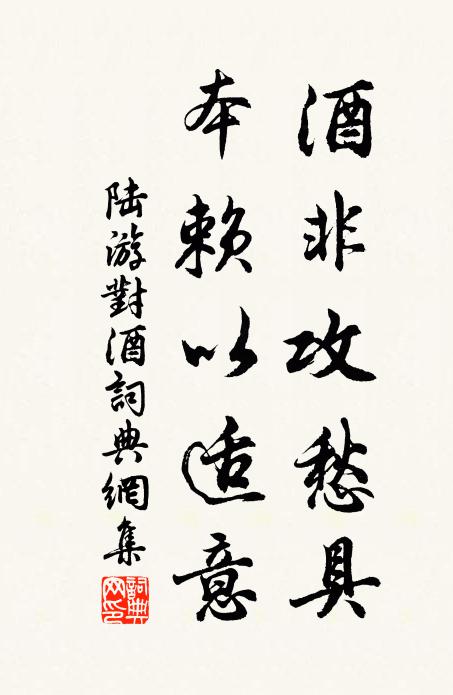 酒非攻愁具
本赖以适意
陆游對酒詞典網集
詞典网印